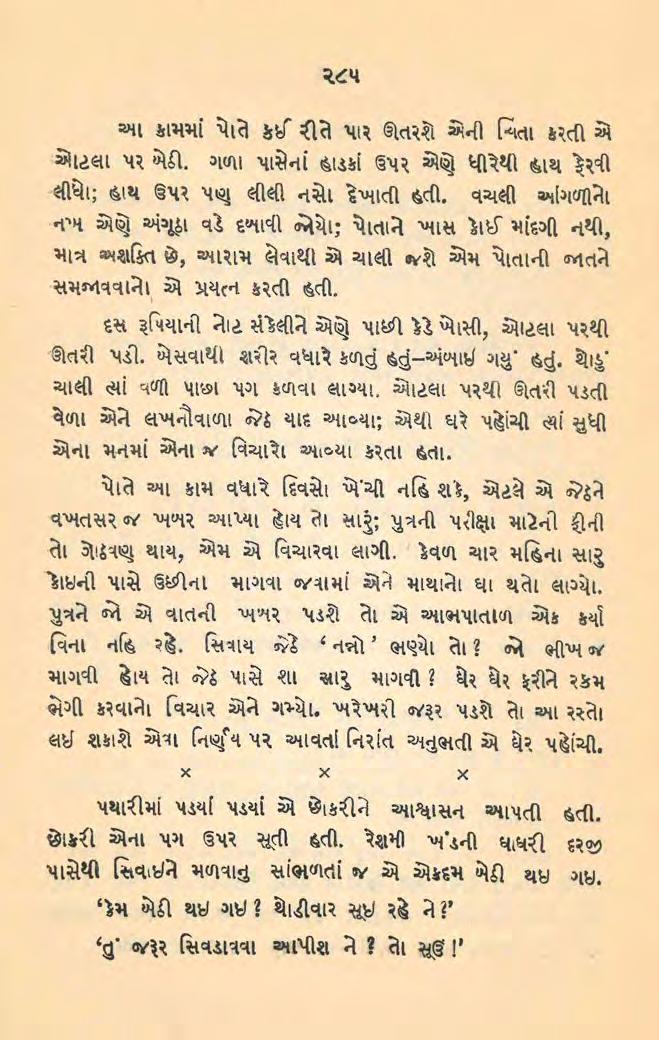 ૨૮૫
આ કામમાં પોતે કઈ રીતે પાર ઊતરશે એની ચિંતા કરતી એ
ઓટલા પર બેઠી. ગળા પાસેનાં હાડકાં ઉપર એણે ધીરેથી હાથ ફેરવી
લીધો; હાથ ઉપર પણ લીલી નસો દેખાતી હતી. વચલી આંગળીનો
નખ એણે અંગૂઠા વડે દબાવી જોયો; પોતાને ખાસ કોઈ માંદગી નથી,
માત્ર અશક્તિ છે, આરામ લેવાથી એ ચાલી જશે એમ પોતાની જાતને
સમજાવવાનો એ પ્રયત્ન કરતી હતી.
દસ રૂપિયાની નોટ સંકેલીને એણે પાછી કેડે ખોસી, ઓટલા પરથી
ઊતરી પડી. બેસવાથી શરીર વધારે કળતું હતું–અંબાઇ ગયું હતું. થોડું
ચાલી ત્યાં વળી પાછા પગ કળવા લાગ્યા. ઓટલા પરથી ઊતરી પડતી
વેળા એને લખનૌવાળા જેઠ યાદ આવ્યા; એથી ઘરે પહોંચી ત્યાં સુધી
એના મનમાં એના જ વિચારો આવ્યા કરતા હતા.
પોતે આ કામ વધારે દિવસો ખેંચી નહિ શકે, એટલે એ જેઠને
વખતસર જ ખબર આપ્યા હોય તો સારું; પુત્રની પરીક્ષા માટેની ફીની
તો ગોઠવણ થાય, એમ એ વિચારવા લાગી. કેવળ ચાર મહિના સારુ
કોઇની પાસે ઉછીના માગવા જવામાં એને માથાનો ઘા થતો લાગ્યો.
પુત્રને જો એ વાતની ખબર પડશે તો એ આભપાતાળ એક કર્યા
વિના નહિ રહે. સિવાય જેઠે ‘નન્નો’ ભણ્યો તો? જો ભીખ જ
માગવી હોય તો જેઠ પાસે શા સારુ માગવી? ઘેર ઘેર ફરીને રકમ
ભેગી કરવાનો વિચાર એને ગમ્યો. ખરેખરી જરૂર પડશે તો આ રસ્તો
લઇ શકાશે એવા નિર્ણય પર આવતાં નિરાંત અનુભતી એ ઘેર પહોંચી.
× × ×
પથારીમાં પડયાં પડયાં એ છોકરીને આશ્વાસન આપતી હતી.
છોકરી એના પગ ઉપર સૂતી હતી. રેશમી ખંડની ઘાઘરી દરજી
પાસેથી સિવાઇને મળવાનુ સાંભળતાં જ એ એકદમ બેઠી થઇ ગઇ.
‘કેમ બેઠી થઇ ગઇ? થોડીવાર સૂઇ રહે ને?’
‘તું જરૂર સિવડાવવા આપીશ ને? તો સૂઉં!’